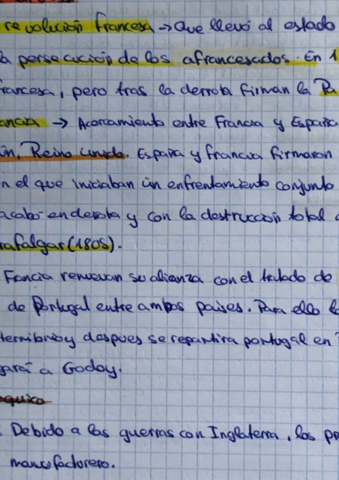 revolución francesa → Que llevó al estado
a persecución de los afrancesados. En 1
rancesa, pero tras la derrota firman la Pa
ancia → Acercamiento entre Francia y España
ún, Reino unido. España y francia firmaron
n el que iniciaban un enfrentamiento conjunto
acabó en derrota y con la destrucción total d
rafalgar (1805).
Fancia renuevan su alianza con el tratado de
de Portugal entre ampos paises. Para ello l
territorio y despues se repartira portugal en
gará a Godoy.
Debido a las guerras con Inglaterra, los pr
manofacturero.